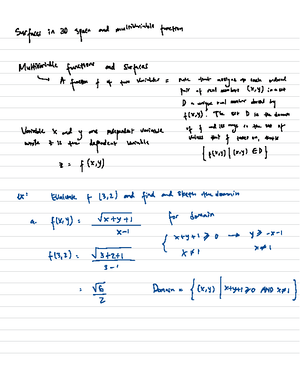 Surfaces in 3D space and multivariable function
Multivariable functions and surfaces
↳ A function f of two variables = rule that assigns to each ordered
pair of real numbers (x,y) in a set
D a unique real number denoted by
f(x,y). The set D is the domain
of f and its range is the set of
values that f takes on, that is
{ f(x,y) | (x,y) ∈ D }
Variable x and y are independent variable
while z is the dependent variable
z = f(x,y)
ex: Evaluate f(3,2) and find and sketch the domain
a. f(x,y) = √(x+y+1) / (x-1)
for domain
{ x+y+1 ≥ 0 → y ≥ -x-1
x ≠ 1 x ≠ 1
f(3,2) = √(3+2+1) / (3-1)
= √6 / 2
Domain = { (x,y) | x+y+1 ≥ 0 AND x ≠ 1 }